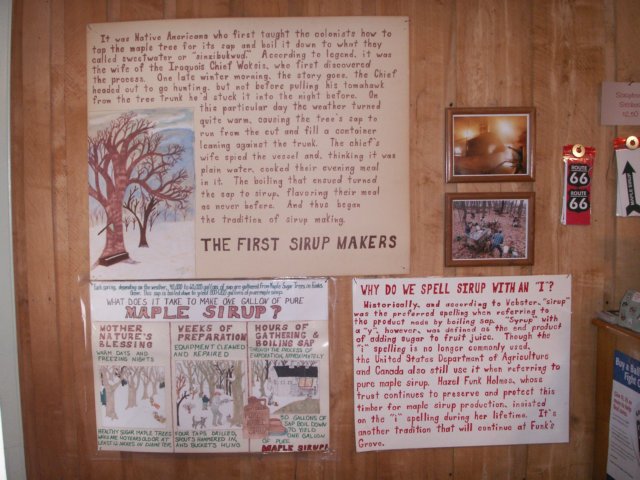 It was Native Americans who first taught the colonists how to
tap the maple tree for its sap and boil it down to what they
called sweetwater or "sinzibukwud." According to legend, it was
the wife of the Iroquois Chief Woksis, who first discovered
the process. One late winter morning, the story goes, the Chief
headed out to go hunting, but not before pulling his tomahawk
from the tree trunk he'd stuck it into the night before. On
this particular day the weather turned
quite warm, causing the tree's sap to
run from the cut and fill a container
leaning against the trunk. The chief's
wife spied the vessel and, thinking it was
plain water, cooked their evening meal
in it. The boiling that ensued turned
the sap to sirup, flavoring their meal
as never before. And thus began
the tradition of sirup making.
THE FIRST SIRUP MAKERS
WHAT DOES IT TAKE TO MAKE ONE GALLON OF PURE
MAPLE SIRUP?
MOTHER
NATURE'S
BLESSING
WARM DAYS AND
FREEZING NIGHTS
HEALTHY SUGAR MAPLE TREES
WHICH ARE 40 YEARS OLD OR AT
LEAST 12 INCHES IN DIAMETER
WEEKS OF
PREPARATION
EQUIPMENT CLEANED
AND REPAIRED
FOUR TAPS DRILLED,
SPOUTS HAMMERED IN,
AND BUCKETS HUNG
HOURS OF
GATHERING &
BOILING SAP
THROUGH THE PROCESS OF
EVAPORATION, APPROXIMATELY
50 GALLONS OF
SAP BOIL DOWN
TO YIELD
ONE GALLON
OF PURE
MAPLE SIRUP!
WHY DO WE SPELL SIRUP WITH AN "I"?
Historically, and according to Webster, "sirup"
was the preferred spelling when referring to
the product made by boiling sap. "Syrup" with
a "y", however, was defined as the end product
of adding sugar to fruit juice. Though the
"i" spelling is no longer commonly used,
the United States Department of Agriculture
and Canada also still use it when referring to
pure maple sirup. Hazel Funk Holmes, whose
trust continues to preserve and protect this
timber for maple sirup production, insisted
on the "i" spelling during her lifetime. It's
another tradition that will continue at Funk's
Grove.
ROUTE
66
ROUTE
66